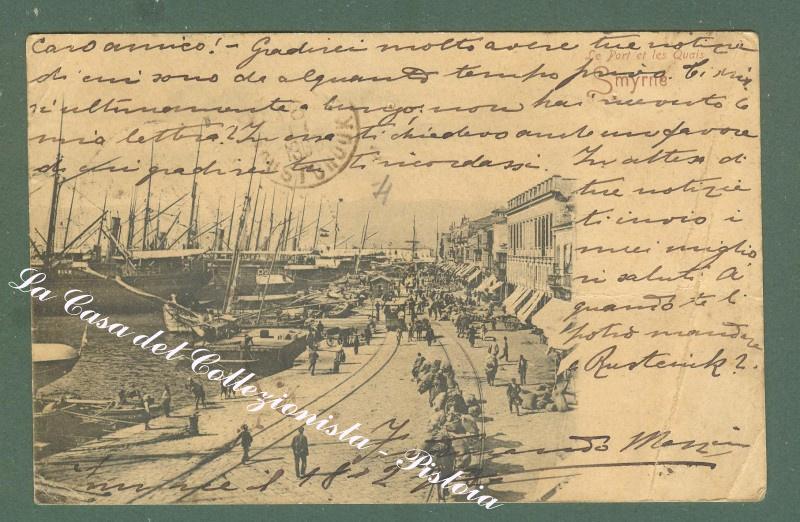 Caro amico! - Gradirei molto avere tue notizie
di cui sono da alquanto tempo privo. Ti scrissi
ultimamente a lungo, non hai ricevuto la
mia lettera? In essa ti chiedevo anche un favore
di cui gradirei tu ti ricordassi.
In attesa di
tue notizie
ti invio i
miei migliori
saluti. A
quando te li
potrò mandare
a
Le Port et les Quais
Smyrne
4
La Casa del Collezionista - Pistoia